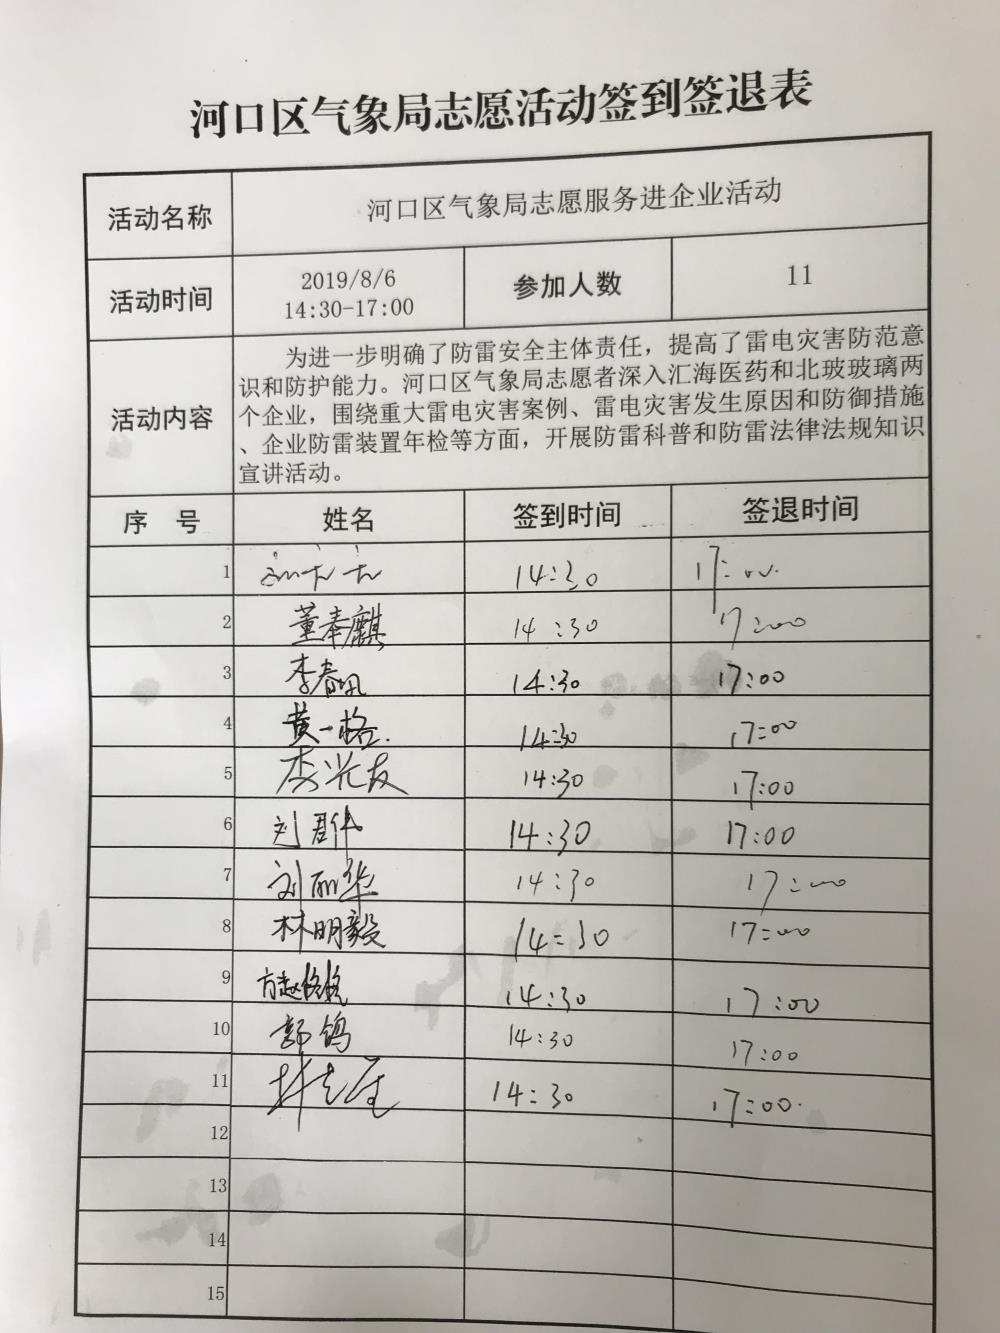 河口区气象局志愿活动签到签退表
活动名称 河口区气象局志愿服务进企业活动
活动时间 2019/8/6 14:30-17:00 参加人数 11
活动内容
为进一步明确了防雷安全主体责任，提高了雷电灾害防范意
识和防护能力。河口区气象局志愿者深入汇海医药和北玻玻璃两
个企业，围绕重大雷电灾害案例、雷电灾害发生原因和防御措施
、企业防雷装置年检等方面，开展防雷科普和防雷法律法规知识
宣讲活动。
序 号 姓名 签到时间 签退时间
1 14:30 17:00
2 董奉麒 14:30 17:00
3 李春 14:30 17:00
4 黄一格 14:30 17:00
5 李兴友 14:30 17:00
6 刘君伟 14:30 17:00
7 刘丽华 14:30 17:00
8 林明毅 14:30 17:00
9 方赵 14:30 17:00
10 郭鸽 14:30 17:00
11 14:30 17:00
12
13
14
15